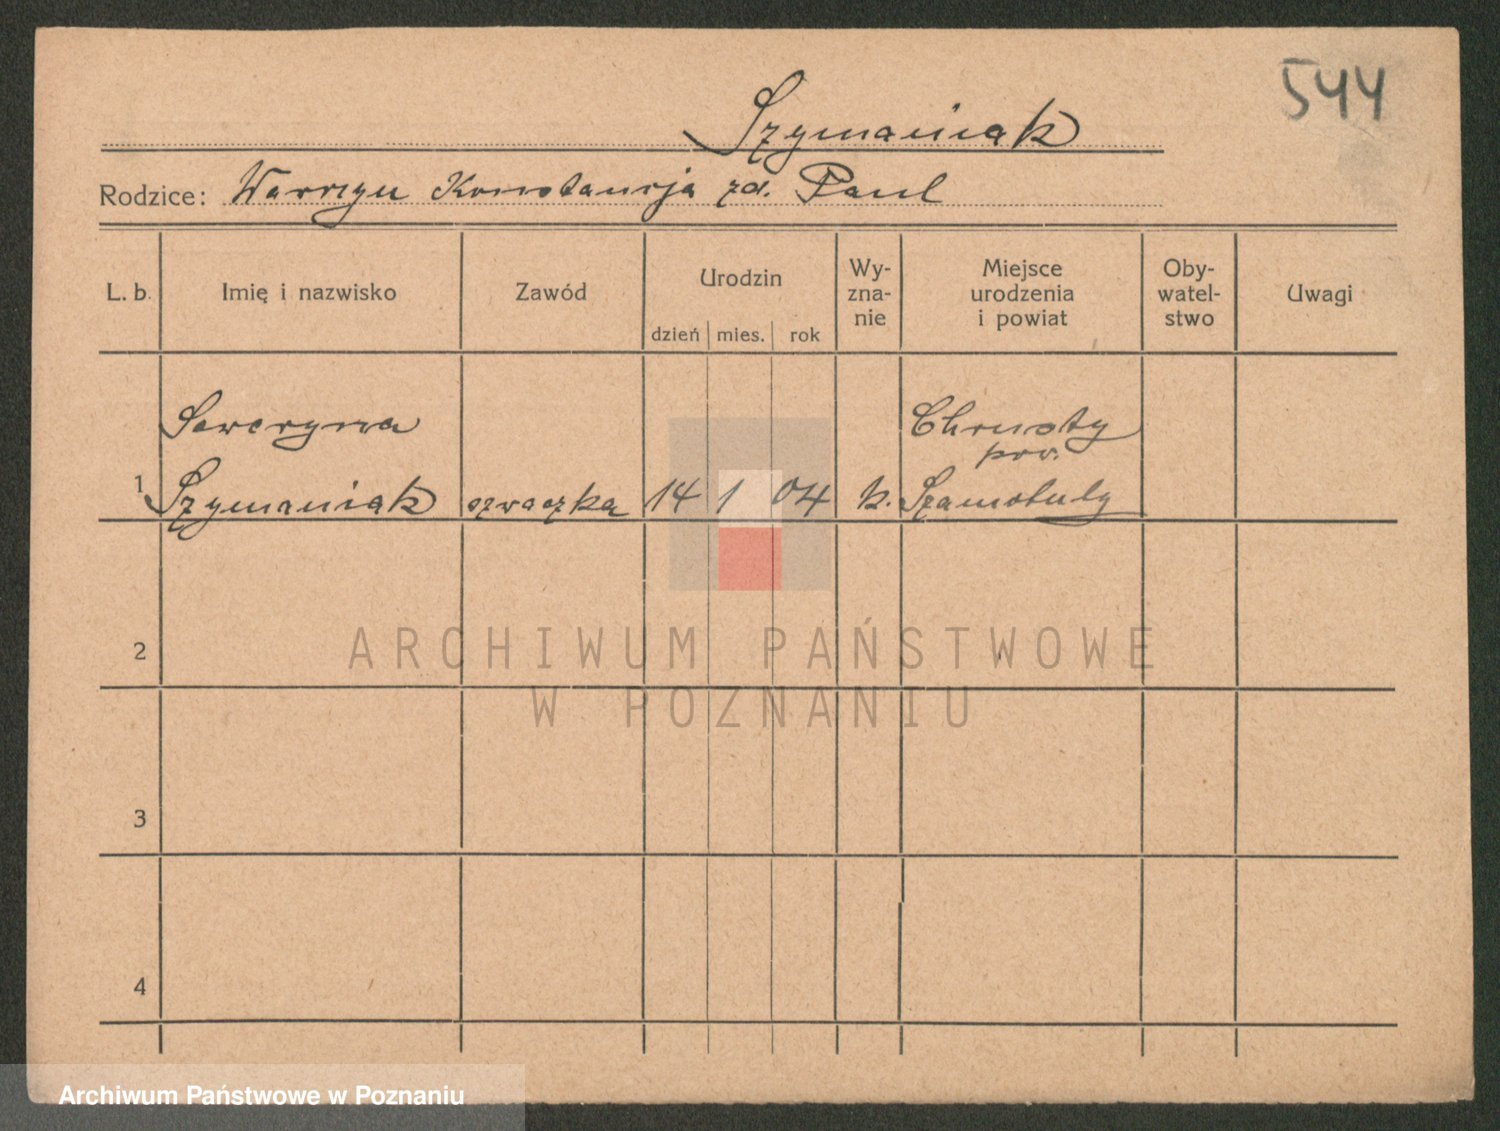 544
Szymaniak
Rodzice: Wawrzyn Konstancja zd. Paul
L. b. Imię i nazwisko Zawód Urodzin dzień mies. rok Wy-zna-nie Miejsce urodzenia i powiat Oby-watel-stwo Uwagi
Seweryna Chrusty
pow.
1 Szymaniak szwaczka 14 1 04 k. Szamotuły
2
ARCHIWUM PAŃSTWOWE
W POZNANIU
3
4
Archiwum Państwowe w Poznaniu